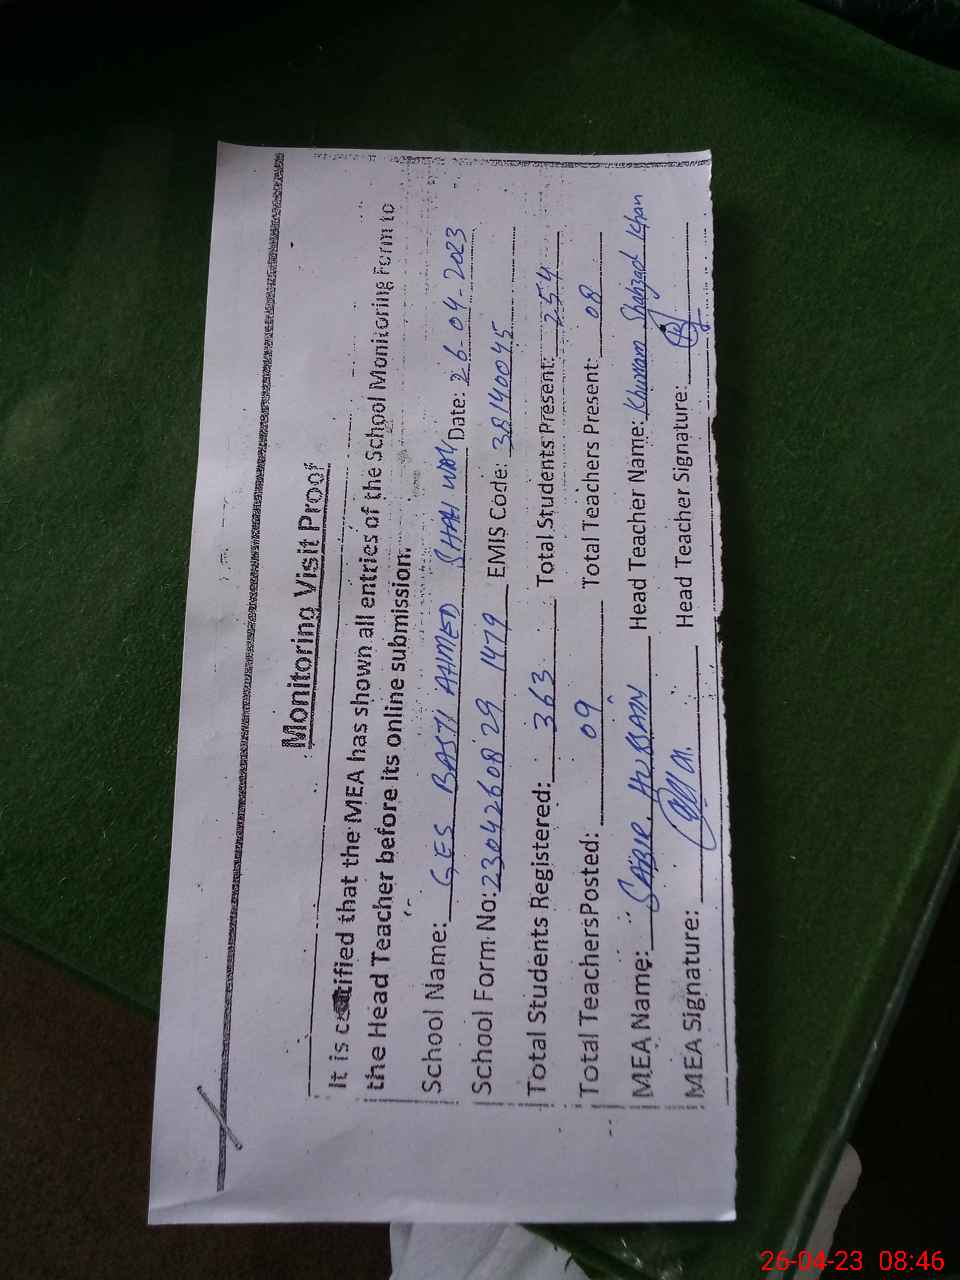 Monitoring Visit Proof
It is certified that the MEA has shown all entries of the School Monitoring Form to
the Head Teacher before its online submission.
School Name: G.E.S BASTI AHMED SHAH WALI Date: 26-04-2023
School Form No: 23042608 29 1479 EMIS Code: 38140045
Total Students Registered: 363 Total Students Present: 254
Total TeachersPosted: 09 Total Teachers Present: 08
MEA Name: SABIR HUSSAIN Head Teacher Name: Khurram Shahzad Khan
MEA Signature: Head Teacher Signature:
26-04-23 08:46